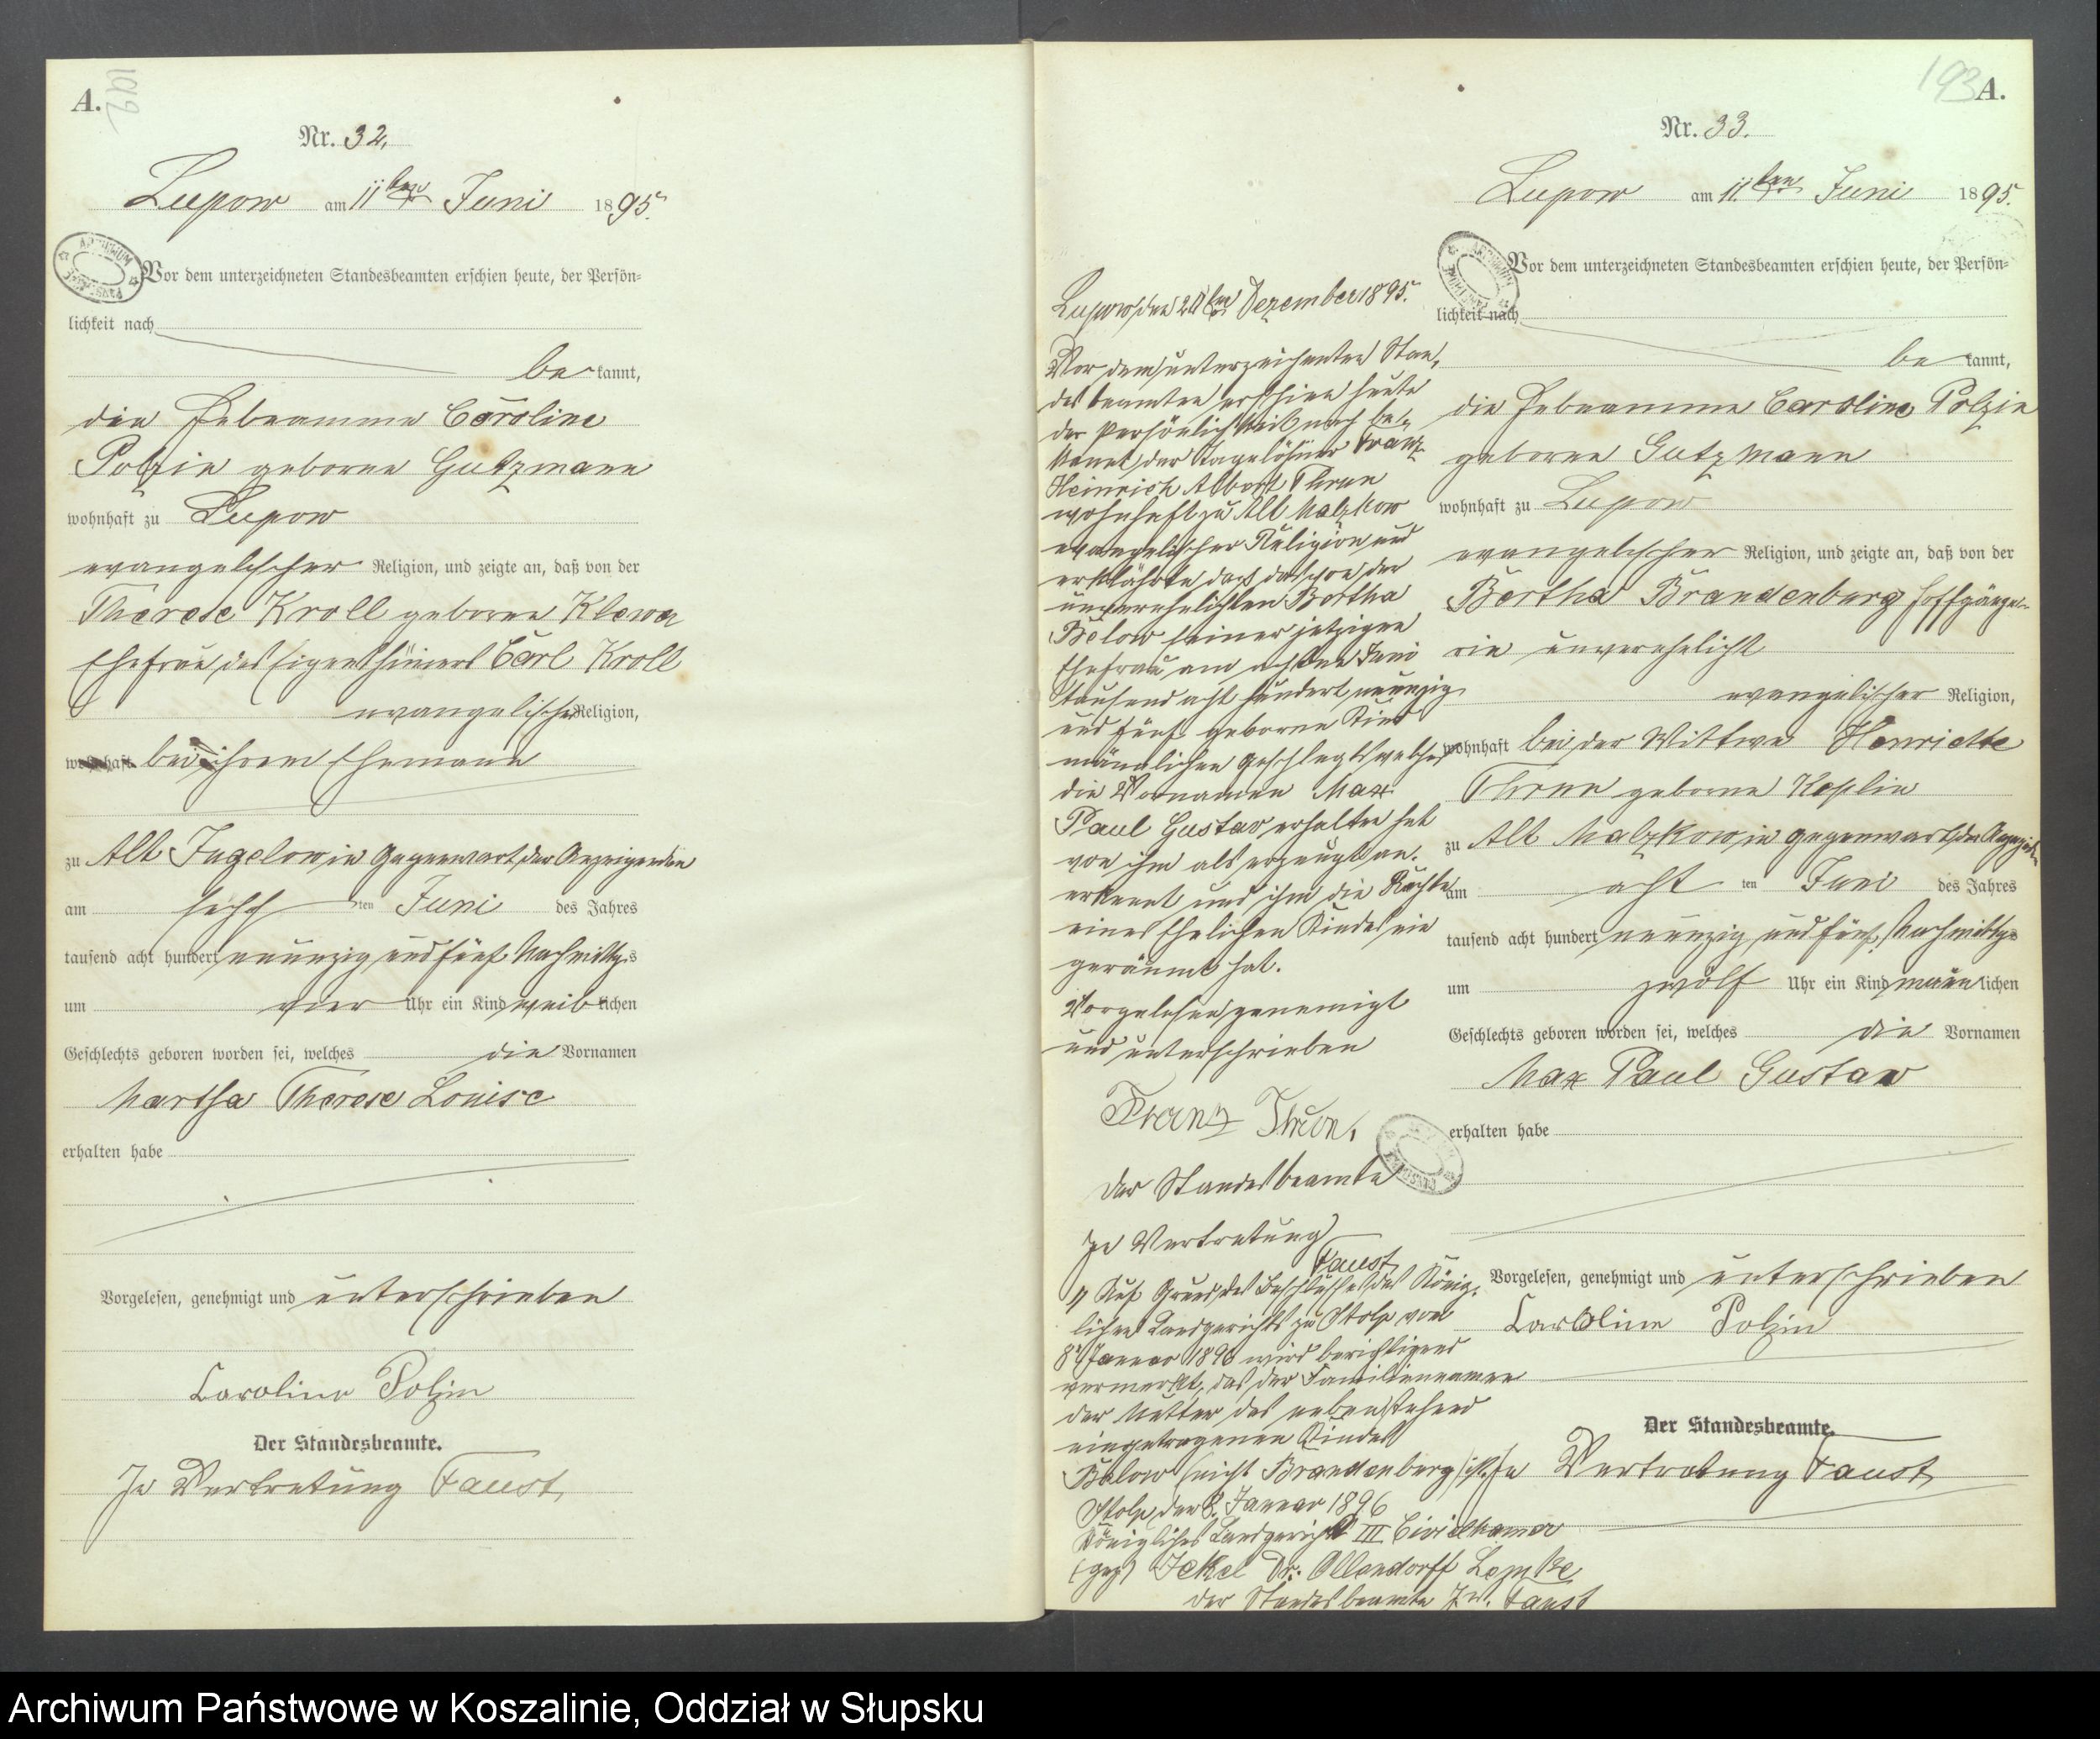 A.
192
Nr. 32.
Lupow am 11ten Juni 1895.
Vor dem unterzeichneten Standesbeamten erschien heute, der Persön=
lichkeit nach
be kannt,
die Hebeamme Caroline
Polzin geborne Gutzmann
wohnhaft zu Lupow
evangelischer Religion, und zeigte an, daß von der
Therese Kroll geborne Klewa
Ehefrau des Eigenthümers Carl Kroll
evangelischer Religion,
wohnhaft bei ihrem Ehemann
zu Alt Jugelow in Gegenwart der Anzeigenden
am sechs ten Juni des Jahres
tausend acht hundert neunzig und fünf Nachmittags
um vier Uhr ein Kind weib lichen
Geschlechts geboren worden sei, welches die Vornamen
Martha Therese Louise
erhalten habe
Vorgelesen, genehmigt und unterschrieben
Caroline Polzin
Der Standesbeamte.
In Vertretung Faust
193 A.
Nr. 33.
Lupow am 11ten Juni 1895.
Vor dem unterzeichneten Standesbeamten erschien heute, der Persön=
lichkeit nach
be kannt,
die Hebeamme Caroline Polzin
geborne Gutzmann
wohnhaft zu Lupow
evangelischer Religion, und zeigte an, daß von der
Bertha Brandenburg Hoffgänge-
rin unverehelicht
evangelischer Religion,
wohnhaft bei der Wittwe Henriette
Thrun geborne Koplin
zu Alt Malzkow in Gegenwart der
am acht ten Juni des Jahres
tausend acht hundert neunzig und fünf Nachmittags
um zwölf Uhr ein Kind männ lichen
Geschlechts geboren worden sei, welches die Vornamen
Max Paul Gustav
erhalten habe
Vorgelesen, genehmigt und unterschrieben
Caroline Polzin
Der Standesbeamte.
In Vertretung Faust
Lupow, den Dezember 1895.
Vor dem unterzeichneten Stan-
des beamten erschien heute
der Persönlichkeit nach be-
kannt, der Tagelöhner Franz
Heinrich Albert Thrun
wohnhaft zu Alt Malzkow
evangelischer Religion und
erklährte das das von der
unverehelichten Bertha
Below seiner jetzigen
Ehefrau am achten Juni
tausend acht hundert neunzig
und fünf geborne Kind
männlichen Geschlechts welches
die Vornamen Max
Paul Gustav erhalten hat
von ihm als erzeugt an-
erkennt und ihm die Rechte
eines Ehelichen Kindes ein
geräumt hat.
Vorgelesen genemigt
und unterschrieben
Franz Thrun.
Der Standesbeamte
In Vertretung
Faust
1) Auf Grund des Beschlusses des König-
lichen Landgerichts zu Stolp vom
8. Januar 1896 wird berichtigend
vermerkt, das der Familiennamen
der Mutter des nebenstehend
eingetragenen Kindes
Below (nicht Brandenburg) ist.
Stolp, den 8. Januar 1896
Königliches Landgericht III Civilkamer
(gez) Jekel Dr. Ollendorff Lemke
der Standesbeamte I.V. Faust
Archiwum Państwowe w Koszalinie, Oddział w Słupsku